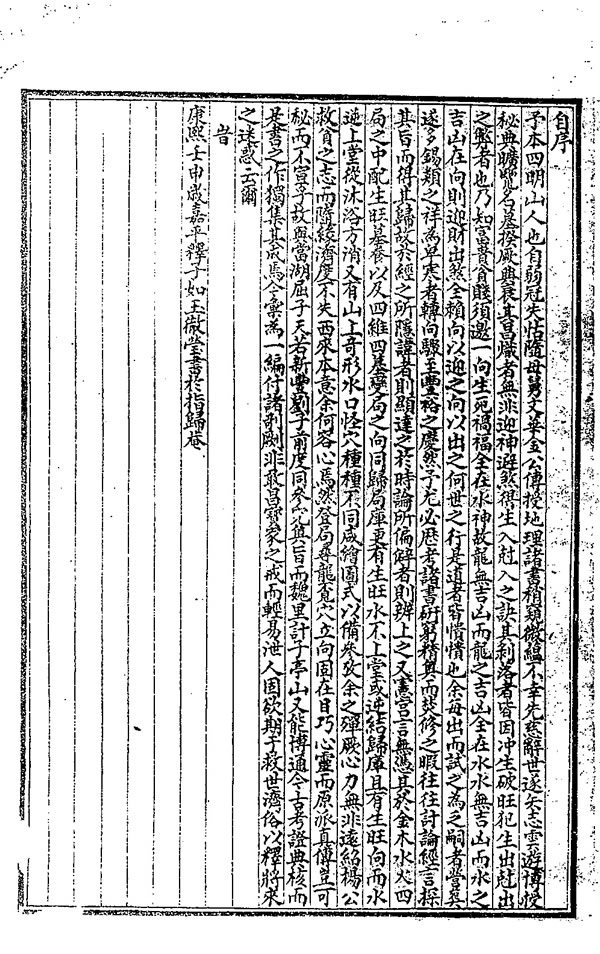 自序
予本四明山人也自弱冠失怙隨母舅文華金公傳授地理諸書稍窺微蘊不幸先慈辭世遂矢志雲遊博授
秘典曠覽名墓揆厥興衰其昌熾者無非迎神避煞得生入尅入之訣其剝落者皆因冲生破旺犯生出尅出
之弊者也乃知富貴貧賤須邀一向生死禍福全在水神故龍無吉凶而龍之吉凶全在水水無吉凶而水之
吉凶在向則迎財出煞全賴向以迎之向以出之何世之行是道者皆憒憒也余每出而試之為之嗣者嘗奠
遂多錫類之祥為卑寒者轉向驟玉豐裕之慶然予尤必歷考諸書研窮精奧而焚修之暇往往討論經言探
其旨而得其歸故於經之所隱諱者則顯達之於時論所偏解者則辨上之又憲空言無憑且於金木水火四
局之中配生旺墓養以及四維四墓變局之向同歸局庫更有生旺水不上堂或逆結歸庫且有生旺向而水
逆上堂從沐浴方消又有山上奇形水口怪穴種種不同咸繪圖式以備參攷余之殫厥心力無非遠紹楊公
救貧之志而隨緣濟度不失西來本意余何容心焉然登局尋龍覓穴立向固在目巧心靈而原派真傳豈可
秘而不宣予故與當湖屈子天若新豐劉子前度同參究其旨而魏里計子亭山又能博通今古考證典核而
是書之作獨集其成焉今彙為一編付諸剞劂非敢昌寶家之戒而輕易泄人因欲期于救世濟俗以釋將來
之迷惑云爾
旹
康熙壬申歲嘉平釋子如玉徹瑩書於指歸菴